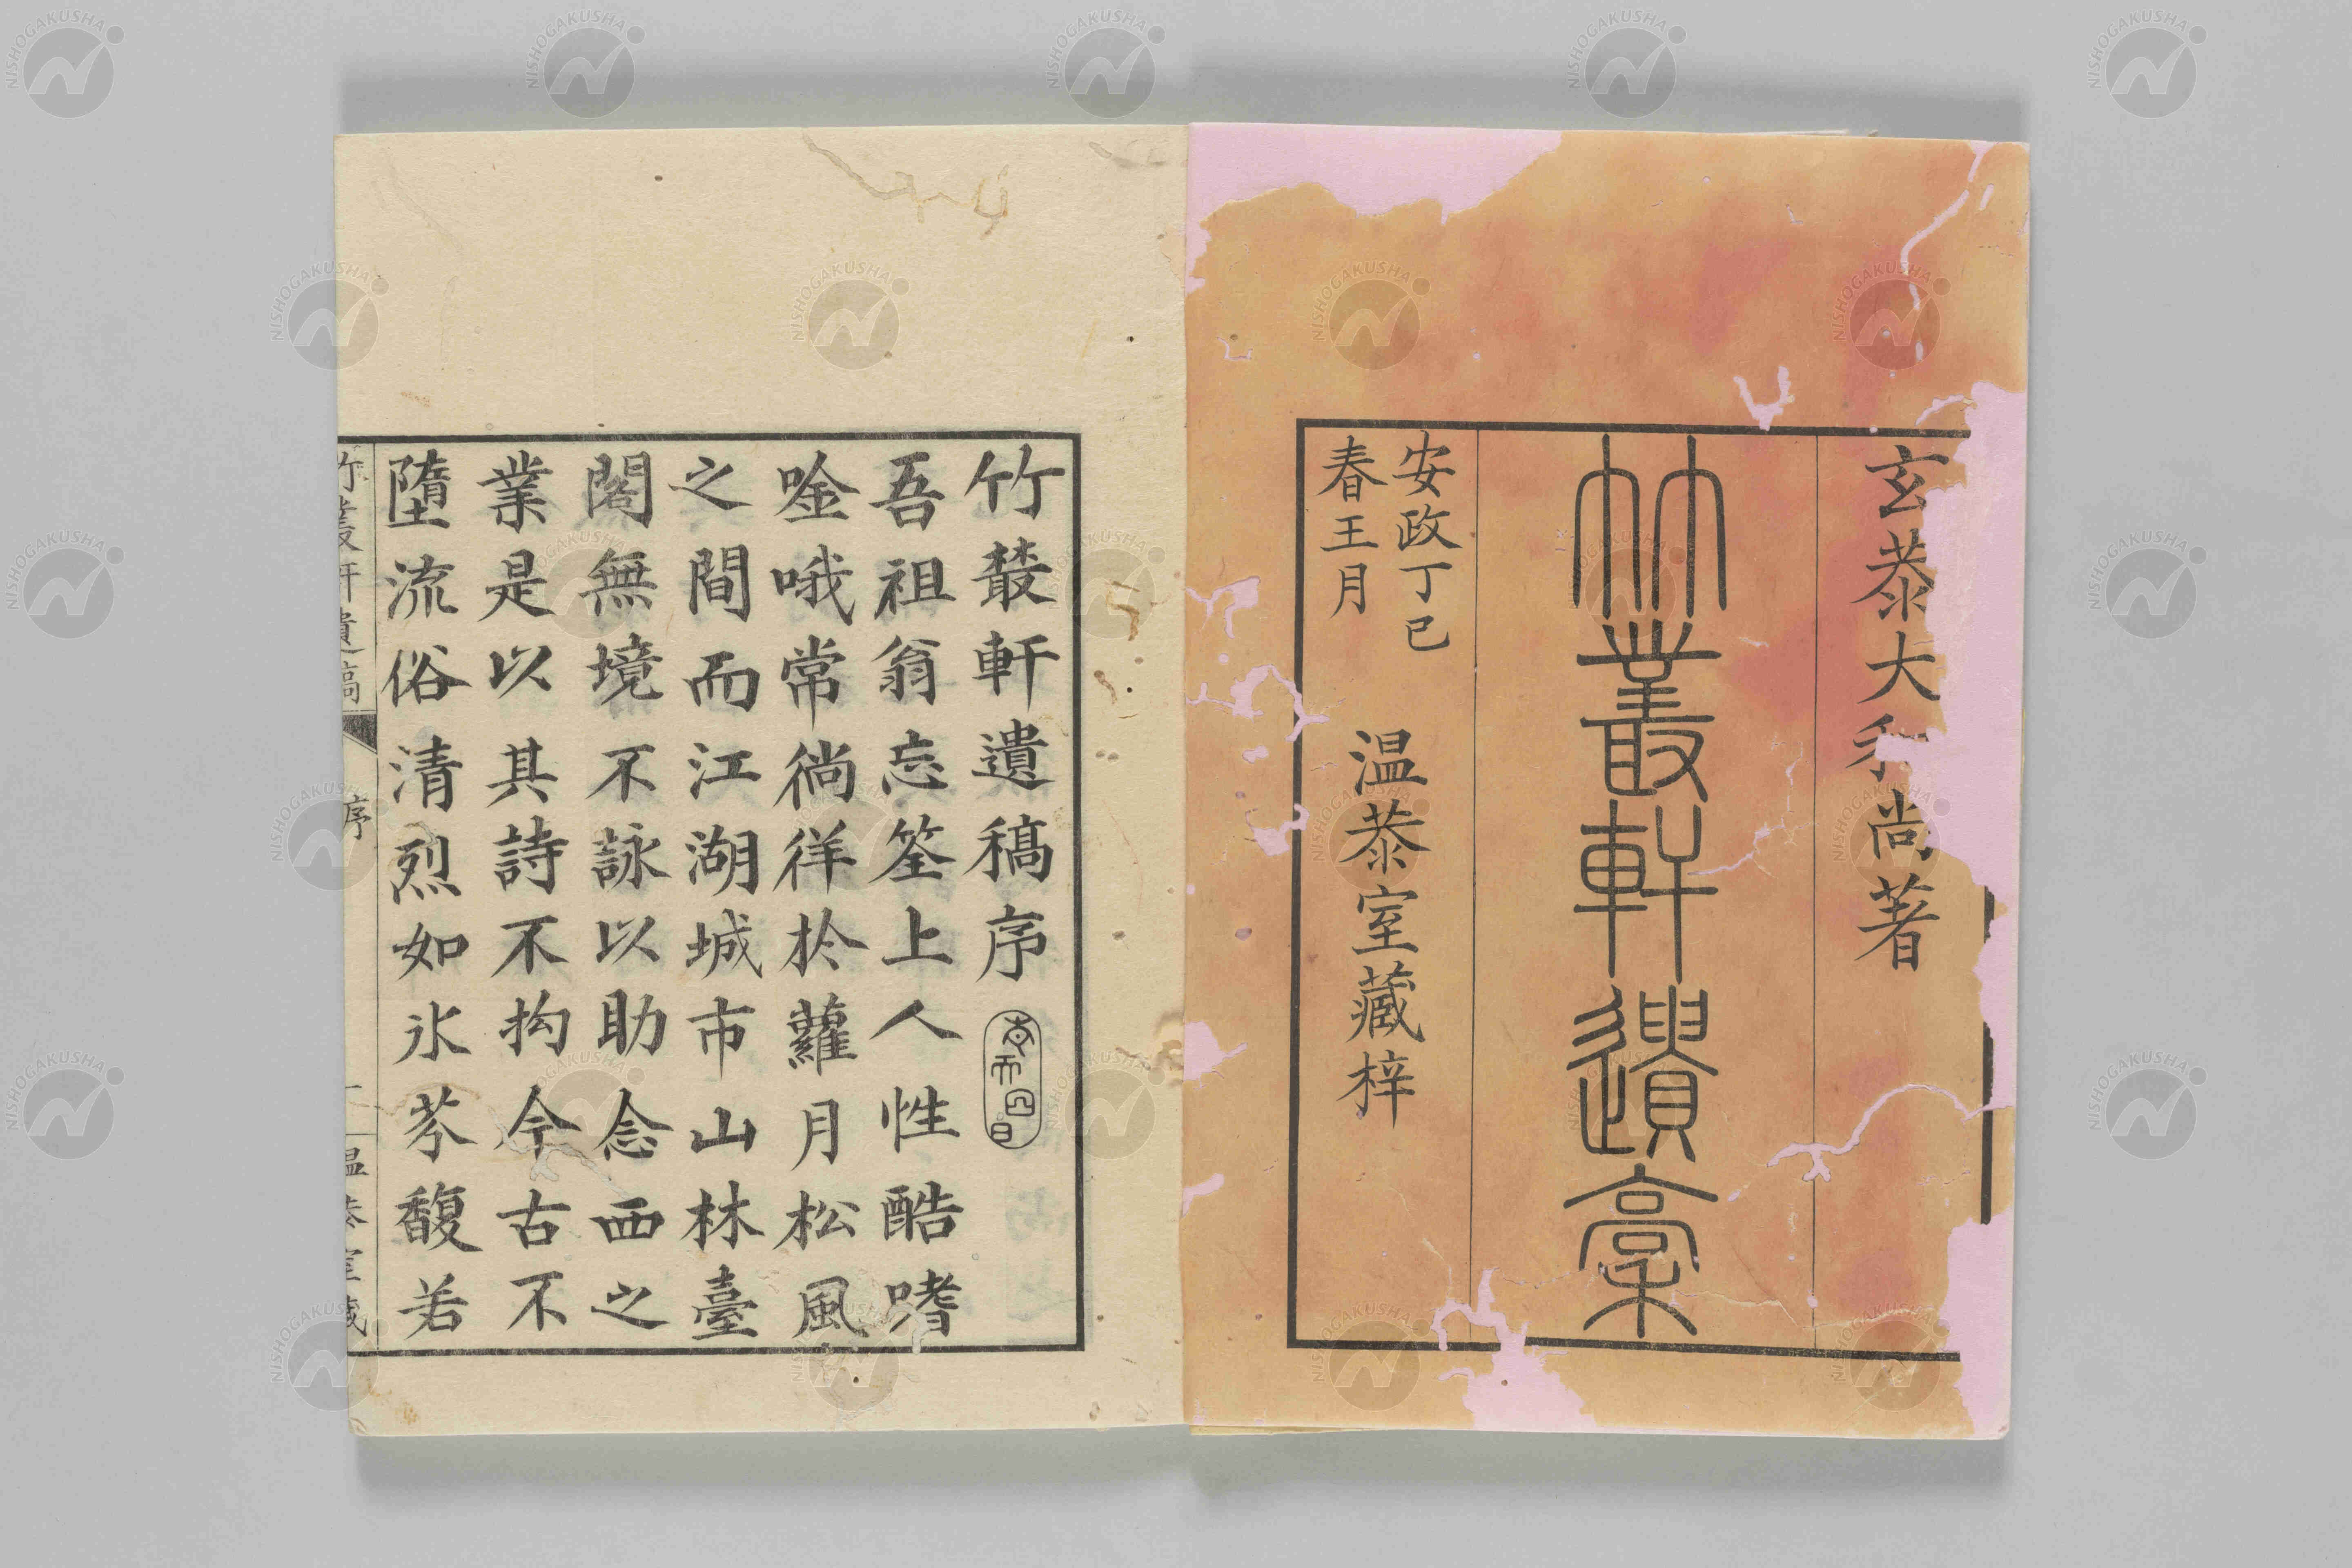 玄泰大和尚著
竹叢軒遺稾
安政丁巳
春王月
温泰室藏梓
竹叢軒遺稿序
吾祖翁忘筌上人性酷嗜
唫哦常徜徉於蘿月松風
之間而江湖城市山林臺
閣無境不詠以助念西之
業是以其詩不拘今古不
墮流俗清烈如氷芬馥若
竹叢軒遺稿
序
NISHOGAKUSHA